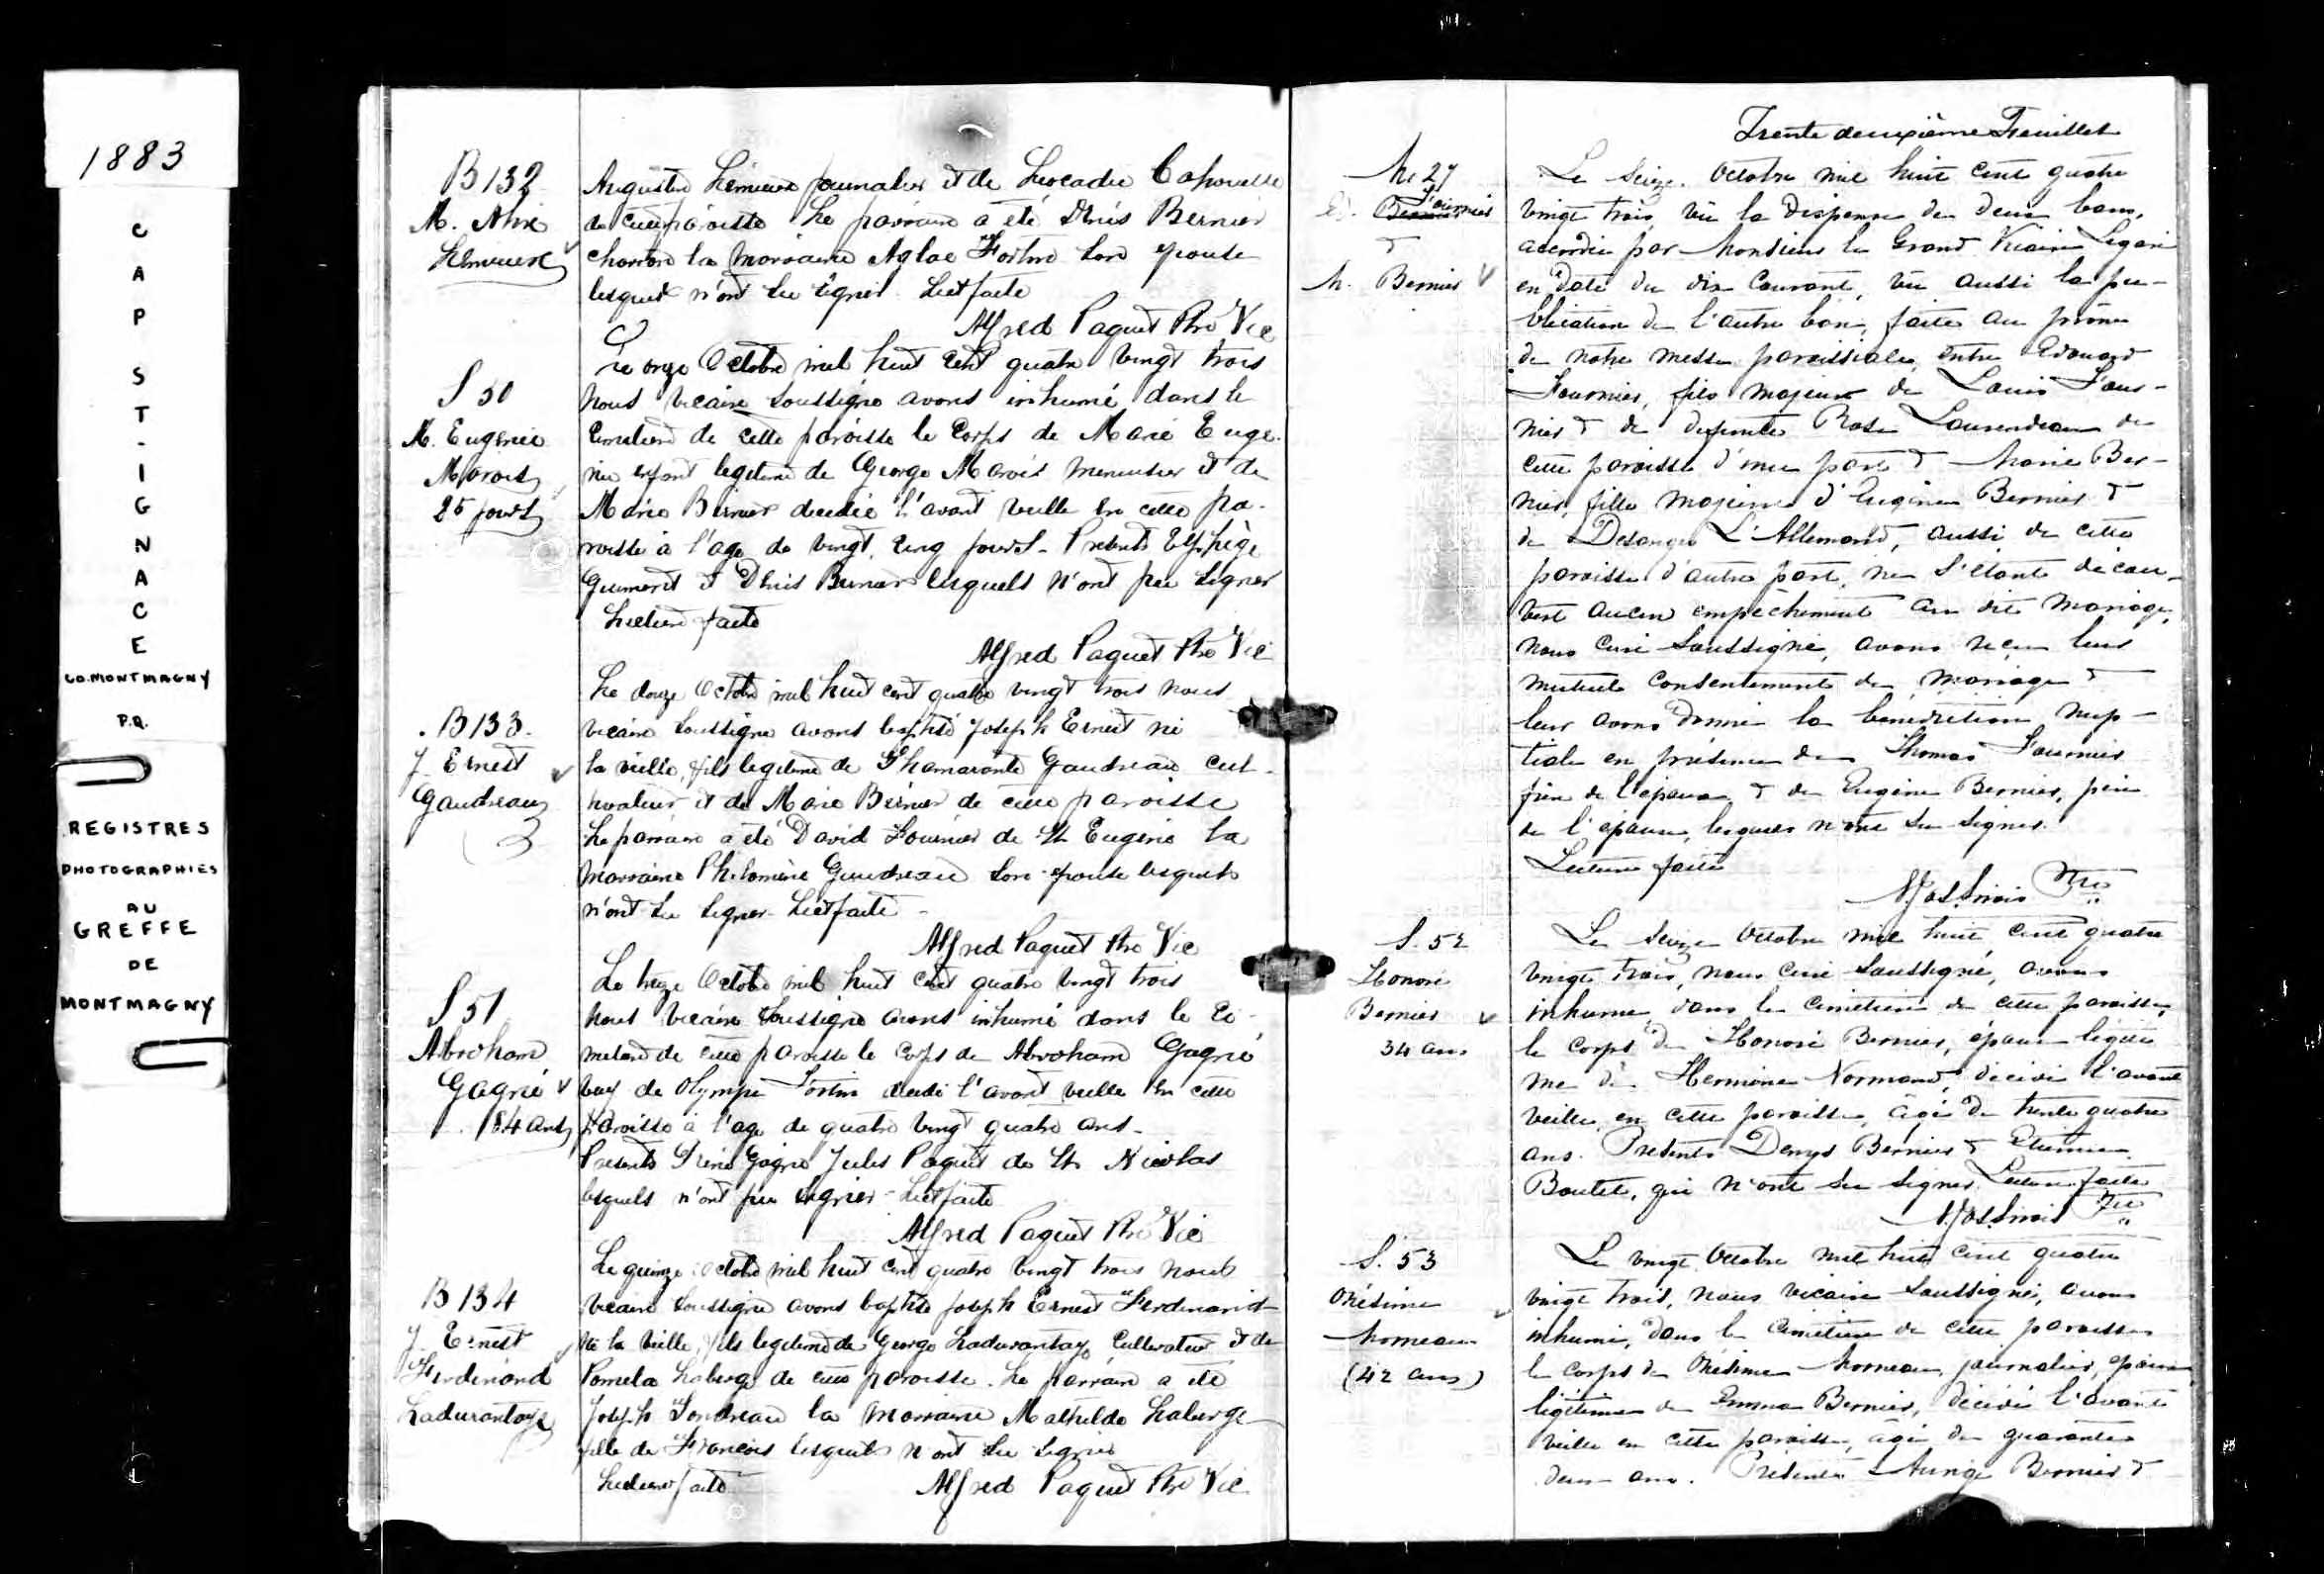 1883
CAP ST-IGNACE
CO. MONTMAGNY
P.Q.
REGISTRES
PHOTOGRAPHIES
AU
GREFFE
DE
MONTMAGNY
B 132
M. Alix
Lemieux
Augustin Lemieux journalier et de Leocadie
de cette paroisse Le parrain a été Denis Bernier
charron la marraine Aglae Fortin son epouse
lesquels n'ont su signer. Lect faite
Alfred Paquet Ptre Vic
S 50
M. Eugenie
Marois
25 jours
Le onze Octobre mil huit cent quatre vingt trois
nous vicaire soussigné avons inhumé dans le
cimetiere de cette paroisse le corps de Marie Euge-
nie enfant legitime de George Marois menuisier et de
Marie Bernier decedée l'avant veille en cette pa-
roisse à l'age de vingt cinq jours - Presents Elphège
Guimont et Denis Bernier lesquels n'ont pu signer
Lecture faite
Alfred Paquet Ptre Vic
B 133.
J. Ernest
Gaudreau
Le douze Octobre mil huit cent quatre vingt trois nous
vicaire soussigné avons baptisé Joseph Ernest né
la veille, fils legitime de Thamarante Gaudreau cul-
tivateur et de Marie Bernier de cette paroisse
Le parrain a été David Fournier de St Eugène la
marraine Philomène Gaudreau son epouse lesquels
n'ont su signer - Lect faite -
Alfred Paquet Ptre Vic
S 51
Abraham
Gagné
84 ans
Le treize Octobre mil huit cent quatre vingt trois
nous vicaire soussigné avons inhumé dans le Ci-
metiere de cette paroisse le corps de Abraham Gagné
veuf de Olympe Fortin decedé l'avant veille en cette
paroisse à l'age de quatre vingt quatre ans -
Presents Irené Gagné Jules Paquet de St Nicolas
lesquels n'ont pu signer - Lect faite
Alfred Paquet Ptre Vic
B 134
J. Ernest
Ferdinand
Ladurantaye
Le quinze Octobre mil huit cent quatre vingt trois nous
vicaire soussigné avons baptisé Joseph Ernest Ferdinand
né la veille, fils legitime de George Ladurantaye Cultivateur et de
Pomela Laberge de cette paroisse. Le parrain a été
Joseph la marraine Mathilde Laberge
fille de Francois lesquels n'ont su signer
Lecture faite
Alfred Paquet Ptre Vic
Trente deuxième Feuillet
M. 27
Ed. Bernier Fournier
&
M. Bernier
Le seize Octobre mil huit cent quatre
vingt trois, vu la dispense de deux bans,
accordée par Monsieur le Grand Vicaire Legaré
en date du dix courant, vu aussi la pu-
blication de l'autre ban, faite au prône
de notre messe paroissiale, entre Edouard
Fournier, fils majeur de Louis Four-
nier & de defunte Rose Laurendeau de
cette paroisse d'une part & Marie Ber-
nier, fille majeure d'Eugène Bernier &
de Desanges L'Allemand, aussi de cette
paroisse d'autre part, ne s'étant décou-
vert aucun empêchement au dit mariage,
nous curé soussigné, avons reçu leur
mutuel consentement de mariage &
leur avons donné la bénédiction nup-
tiale en présence de Thomas Fournier
frère de l'époux & de Eugène Bernier, père
de l'épouse, lesquels n'ont su signer.
Lecture faite
N. Jos. Sirois Ptre
S. 52
Honoré
Bernier
34 ans
Le seize Octobre mil huit cent quatre
vingt trois, nous curé soussigné, avons
inhumé dans le cimetière de cette paroisse,
le corps de Honoré Bernier, époux légiti-
me de Hermine Normand, décédé l'avant
veille, en cette paroisse, âgé de trente quatre
ans. Présents Denys Bernier & Etienne
Boutet, qui n'ont su signer. Lecture faite
N. Jos. Sirois Ptre
S. 53
Onésime
Morneau
(42 ans)
Le vingt Octobre mil huit cent quatre
vingt trois, nous vicaire soussigné, avons
inhumé, dans le cimetière de cette paroisse
le corps de Onésime Morneau, journalier, époux
légitime de Emma Bernier, décédé l'avant
veille en cette paroisse, âgé de quarante
deux ans. Présents Bernier &